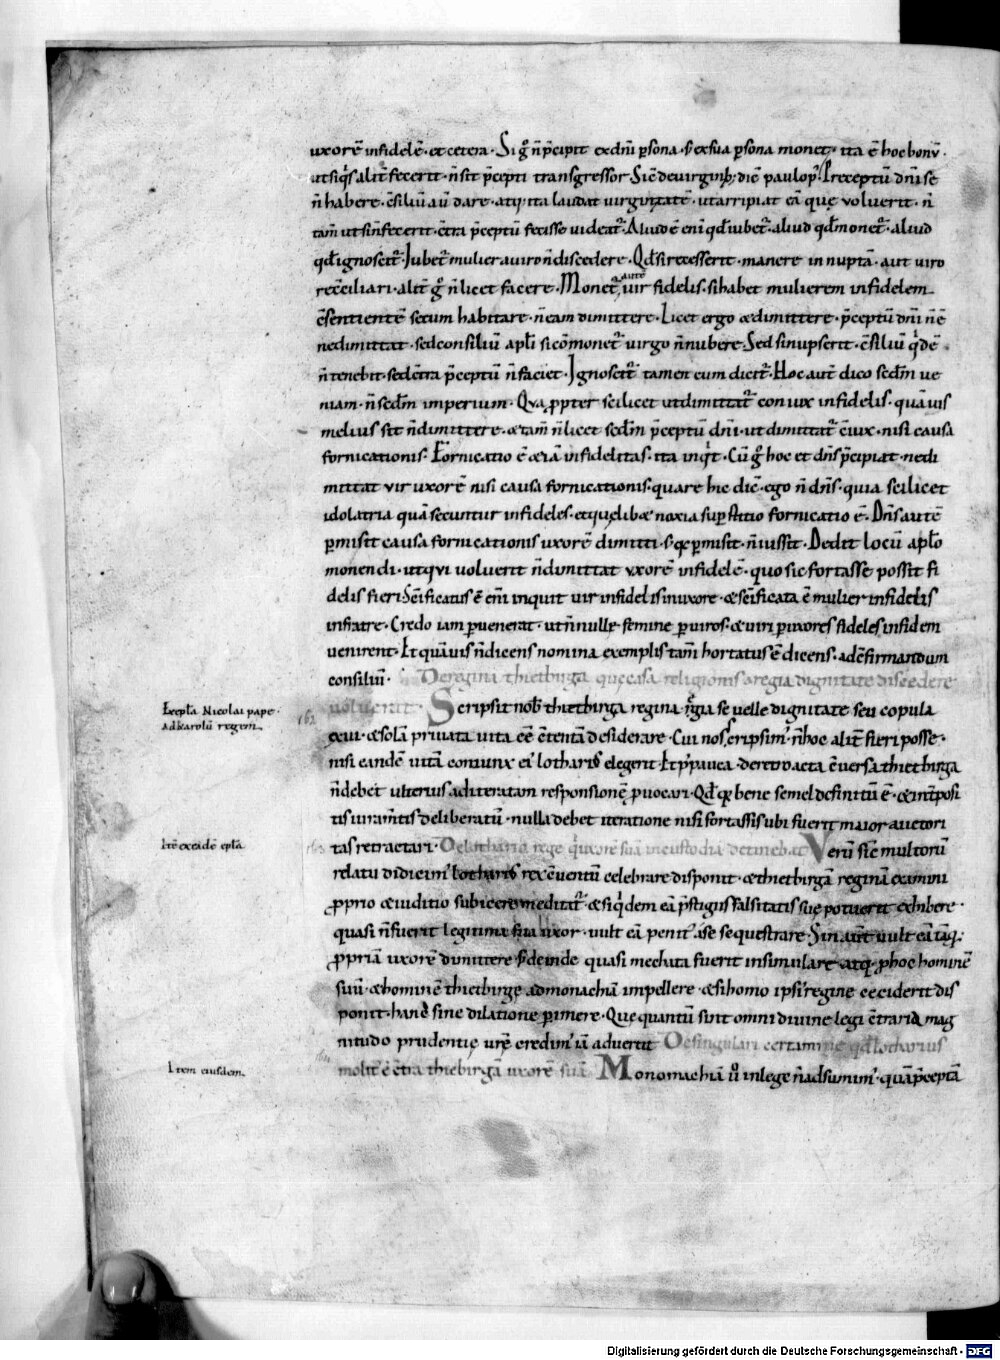 uxorē infidelē· et cetera· Si g̊ n̄ p̄cipit ex dn̄i ꝑsona· s; ex sua ꝑsona monet· ita ē hoc bonū·
ut siq̇s alit̄ fecerit· n̄ sit p̄cepti transgressor Sic̄ de uirginib; dic̄ paulo p̊· Preceptū dn̄i se
n̄ habere· c̄siliū aū dare· atq; ita laudat uirginitatē· ut arripiat eā quę uoluerit· n̄
tam̄ ut si n̄ fecerit· c̄tra p̄ceptū fecisse uideat᷑· Aliud ē eni qd̄ iubet᷑· aliud qd̄ monet᷑· aliud
qd̄ ignoscit᷑· Jubet᷑ mulier a uiro n̄ discedere· Qd̄ si recesserit· manere innuptā· aut uiro
rec̄ciliari· alit̄ g̊ n̄ licet facere· Monet᷑ aute uir fidelis· si habet mulierem infidelem
c̄sentientē secum habitare· n̄ eam dimittere· Licet ergo & dimittere· p̄ceptū dn̄i n̄ ē
ne dimittat· sed consiliū apl̄i sic̄ monet᷑ uirgo n̄ nubere· Sed si nupserit· c̄siliū q̇dē
n̄ tenebit· sed c̄tra p̄ceptū n̄ faciet· Ignoscit᷑ tamen cum dicit᷑· Hoc aut̄ dico sedm̄ ue
niam· n̄ sedm̄ imperium· Qua ꝓpter scilicet ut dimittat᷑ coniux infidelis· quāuis
melius sit n̄ dimittere· & tam̄ n̄ licet sedm̄ p̄ceptū dn̄i· ut dimittat᷑ c̄iux· nisi causa
fornicationis· Fornicatio ē & iā infidelitas· ita inq̇t· Cū g̊ hoc et dn̄s p̄cipiat· ne di
mittat uir uxorē nisi causa fornicationis· quare hic dic̄· ego n̄ dn̄s· quia scilicet
idolatria quā secuntur infideles· et quęlibæ noxia suꝑstitio fornicatio ē· Dn̄s autē
ꝑmisit causa fornicationis uxorē dimitti· s; q; ꝑmisit· n̄ iussit· Dedit locū apl̄o
monendi· ut qui uoluerit n̄ dimittat uxorē infidelē· quo sic fortasse possit fi
delis fieri Sc̄ificatus ē eni inquit uir infidelis in uxore· & sc̄ificata ē mulier infidelis
in fratre· Credo iam ꝑuenerat· ut n̄nullę femine ꝑ uiros· & uiri ꝑ uxores fideles in fidem
uenirent· Et quāuis n̄ dicens nomina exemplis tam̄ hortatus ē dicens· ad c̄firmandum
consiliū· De regina thietbirga que casa religionis a regia dignitate discedere
uoluerit· Scripsit nob̄ thietbirga regina· regia se uelle dignitate seu copula
exui· & solā priuata uita eē c̄tentā desiderare· Cui nos scripsim᷒· n̄ hoc alit̄ fieri posse·
nisi eandē uitā coniunx ei᷒ lotharis elegerit Et p᷒ pauca· de retroacta c̄uersa thietbirga
n̄ debet ulterius ad iteratam responsionē ꝓuocari· Qd̄ q; bene semel definitū ē· & int̄posi
tis iuram̄tis deliberatū· nulla debet iteratione nisi fortassis ubi fuerit maior auctori
tas retractari· De lothario rege q̇ uxorē suā in custodia detinebat Verū sic̄ multorū
relatu didicim᷒ lotharis rex c̄uentū celebrare disponit· & thietbirgā reginā examini
ꝓprio & iuditio subicere meditat᷑· & siq̇dem eā p̄stigiis falsitatis suę potuerit exhibere·
quasi n̄ fuerit legitima sua uxor· uult eā penit᷒ a se sequestrare· Sin aut̄ uult eā tāq;
ꝓpriā uxorē dimittere s; deinde quasi mechata fuerit insimulare atq; ꝓ hoc hominē
suū· & hominē thietbirgę ad monachiā impellere· & si homo ipsi᷒ regine ceciderit dis
ponit· hanc sine dilatione ꝑimere· Que quantū sint omni diuine legi c̄traria mag
nitudo prudentię urē credim᷒ iā aduertit De singulari certamine qd̄ lotharius
molit᷒ ē c̄tra thiebirgā uxorē suā Monomachiā ů in lege n̄ adsumim᷒· quā p̄ceptā
Ex epl̄a Nicolai pape·
ad karolū regem
162
Itē ex eadē epl̄a
163
Item eiusdem
Digitalisierung gefördert durch die Deutsche Forschungsgemeinschaft - DFG